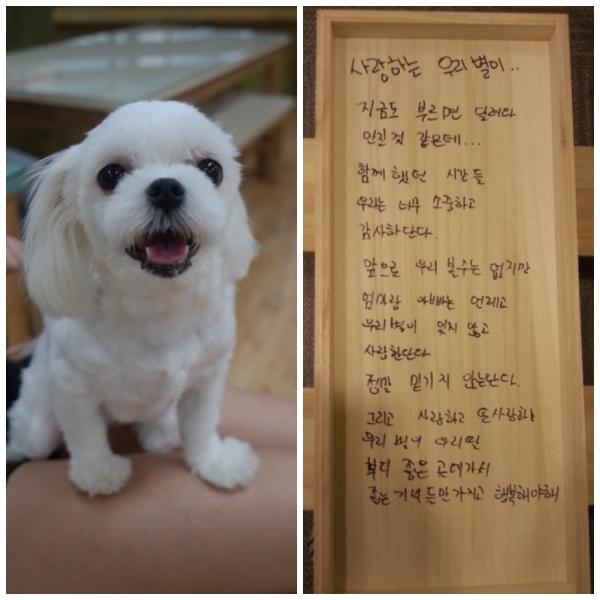 사랑하는 우리 별이..
지금도 부르면 달려다
안긴것 같은데...
함께 했던 시간들
우리는 너무 소중하고
감사하단다.
앞으로 우리 볼수는 없지만
엄마랑 아빠는 언제고
우리별이 잊지 않고
사랑한단다
정말 믿기지 않는단다.
그리고 사랑하고 또 사랑하는
우리 별이
부디 좋은 곳에가서
좋은기억들만가지고 행복해야해